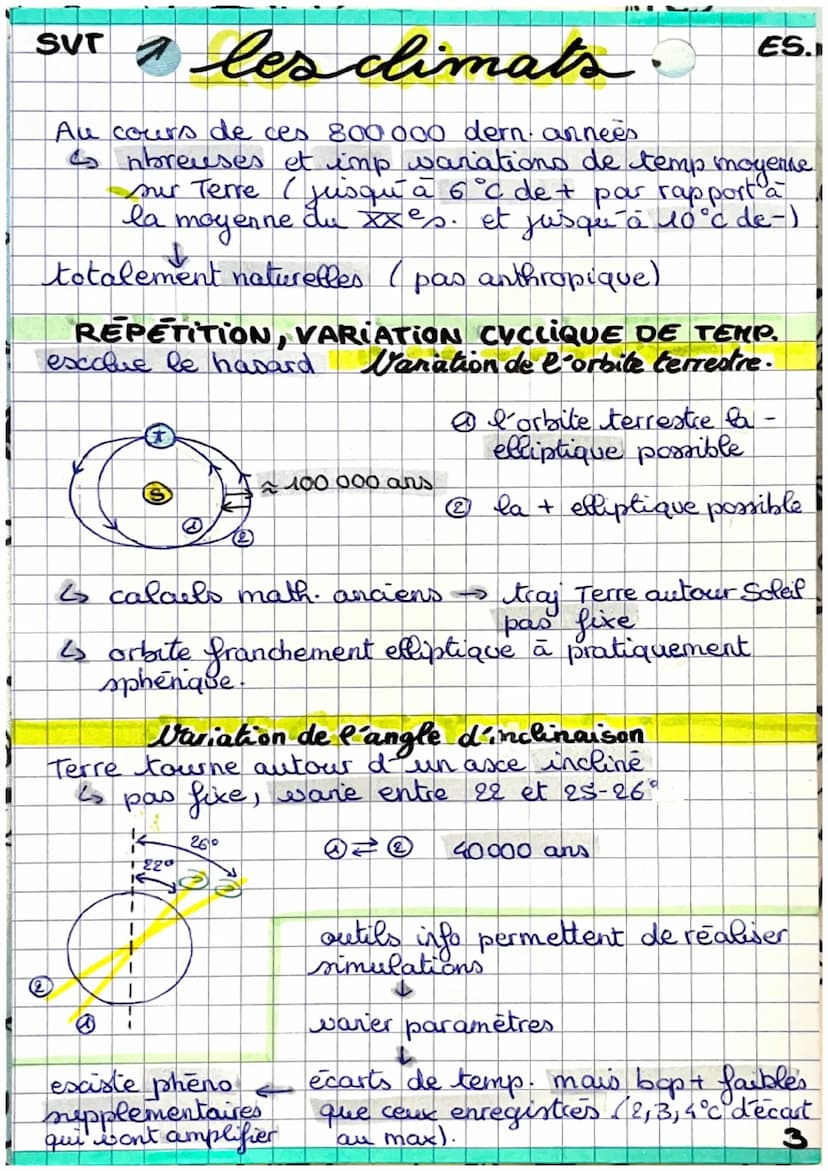 SVT 1 les climats ES.
Au cours de ces 800 000 dern. années
↳ nbreuses et imp variations de temp moyenne
sur Terre (jusqu'à 6°C de + par rapport à
la moyenne du XXe s. et jusqu'à 10°C de -)
↓
totalement naturelles (pas anthropique)
RÉPÉTITION, VARIATION CYCLIQUE DE TEMP.
exclue le hasard Variation de l'orbite terrestre.
T
S
≈ 100 000 ans
①
②
① l'orbite terrestre la -
elliptique possible
② la + elliptique possible
↳ calculs math. anciens → traj Terre autour Soleil
pas fixe
↳ orbite franchement elliptique à pratiquement
sphérique.
Variation de l'angle d'inclinaison
Terre tourne autour d'un axe incliné
↳ pas fixe, varie entre 22 et 25-26°
26°
22°
②
①
① ⇄ ② 40 000 ans
outils info permettent de réaliser
simulations
↓
varier paramètres
↓
écarts de temp. mais bcp + faibles
que ceux enregistrés (2,3,4°C d'écart
au max).
← existe phéno
supplémentaires
qui vont amplifier
3